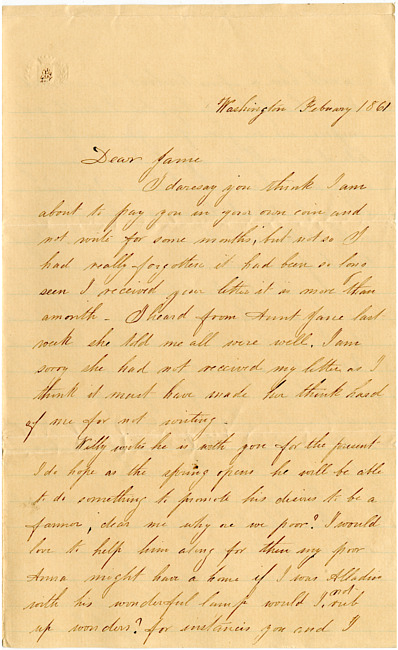 Washington February 1861
Dear Jamie
I daresay you think I am
about to pay you in your own coin and
not write for some months, but not so I
had really forgotten it had been so long
seen I received your letter it is more than
a month - I heard from Aunt Jane last
week she told me all were well. I am
sorry she had not received my letter as I
think it must have made her think hard
of me for not writing -
Willy writes he is with you for the present
I do hope as the spring opens he will be able
to do something to promote his desires to be a
farmer, dear me why are we poor? I would
love to help him along for then my poor
Anna might have a home if I was Alladin
with his wonderful lamp would I not rub
up wonders? for instances you and I